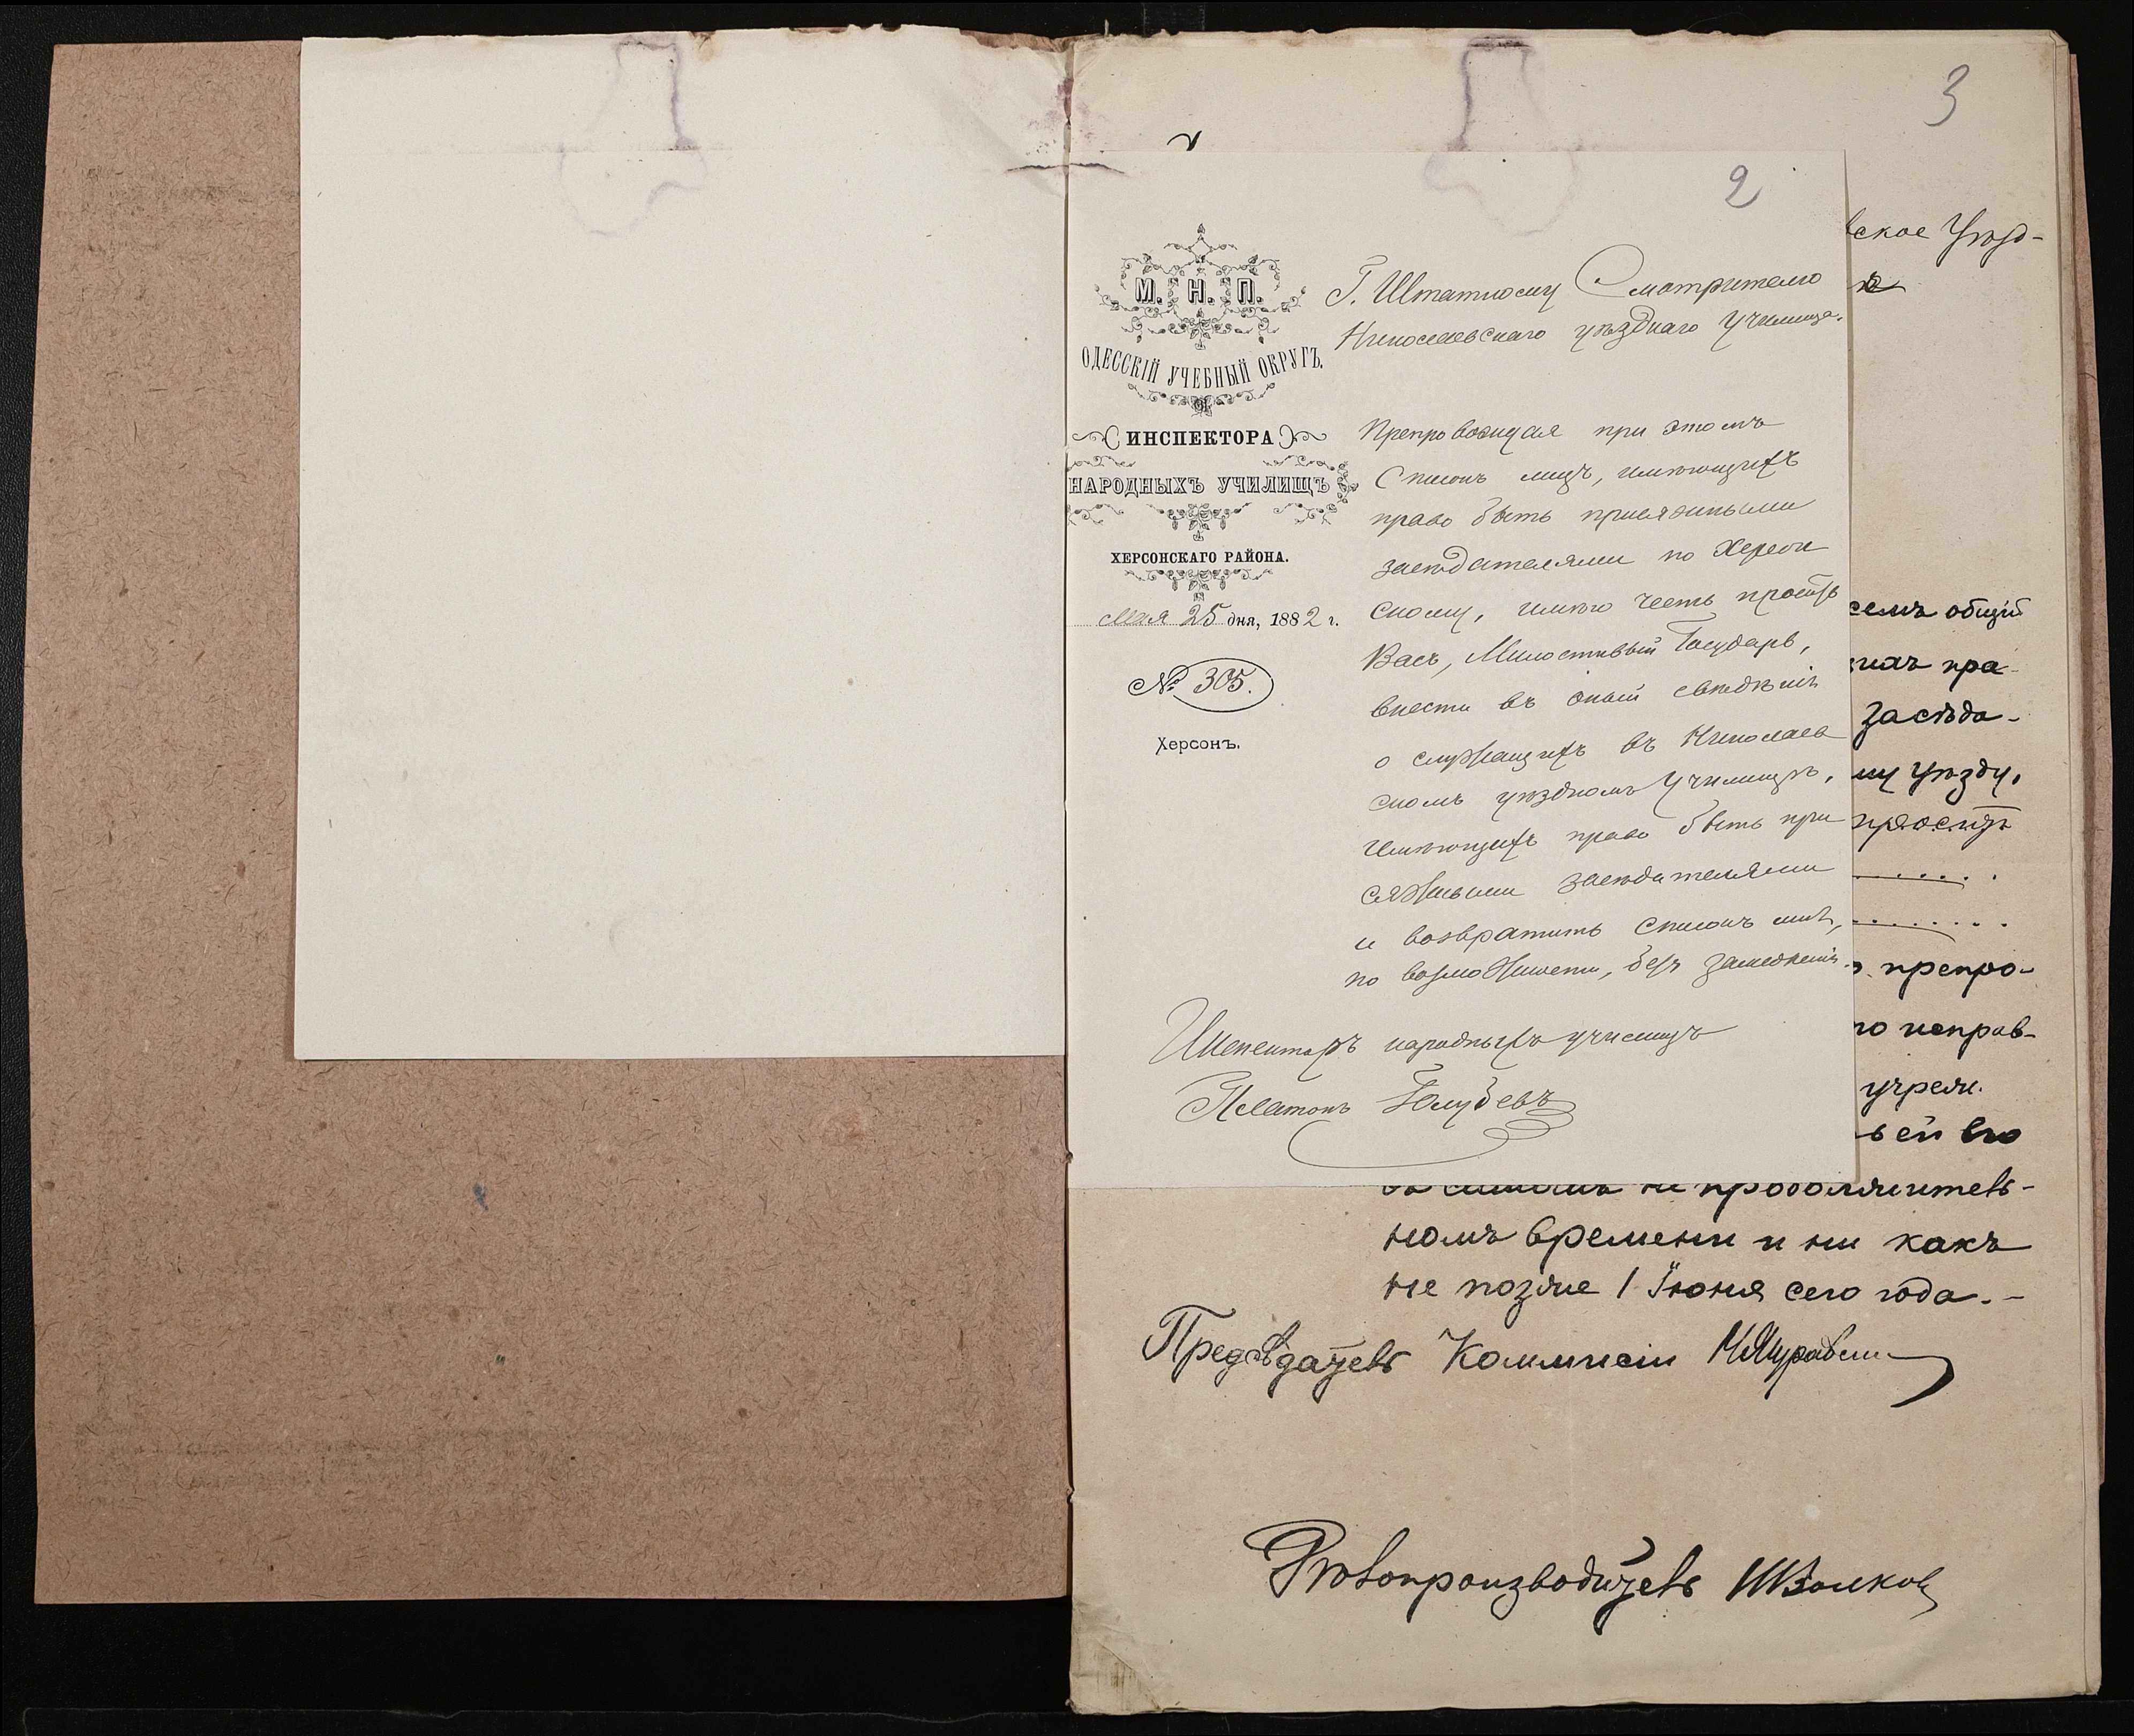 3
2
М. Н. П.
ОДЕССКІЙ УЧЕБНЫЙ ОКРУГЪ.
ИНСПЕКТОРА
НАРОДНЫХЪ УЧИЛИЩЪ
ХЕРСОНСКАГО РАЙОНА.
Мая 25 дня, 1882 г.
№ 305.
Херсонъ.
Г. Штатному Смотрителю
Николаевскаго уѣзднаго училища.
Препровождая при этомъ
Списокъ лицъ, имѣющихъ
право быть присяжными
засѣдателями по Херсон
скому, имѣю честь просить
Васъ, Милостивый Государь,
внести въ оный свѣдѣнія
о служащихъ въ Николаев
скомъ уѣздномъ училищѣ,
имѣющихъ право быть при
сяжными засѣдателями
и возвратить списокъ мнѣ,
по возможности, безъ замедленія.
Инспекторъ народныхъ училищъ
Платонъ Голубевъ
вское Уѣзд-
семъ общій
пра-
засѣда-
му уѣзду,
проситъ
препро-
исправ-
учреж.
ьей его
въ самомъ не продолжитель-
номъ времени и ни какъ
не позже 1 Іюня сего года.-
Предсѣдатель Коммисіи
Дѣлопроизводитель